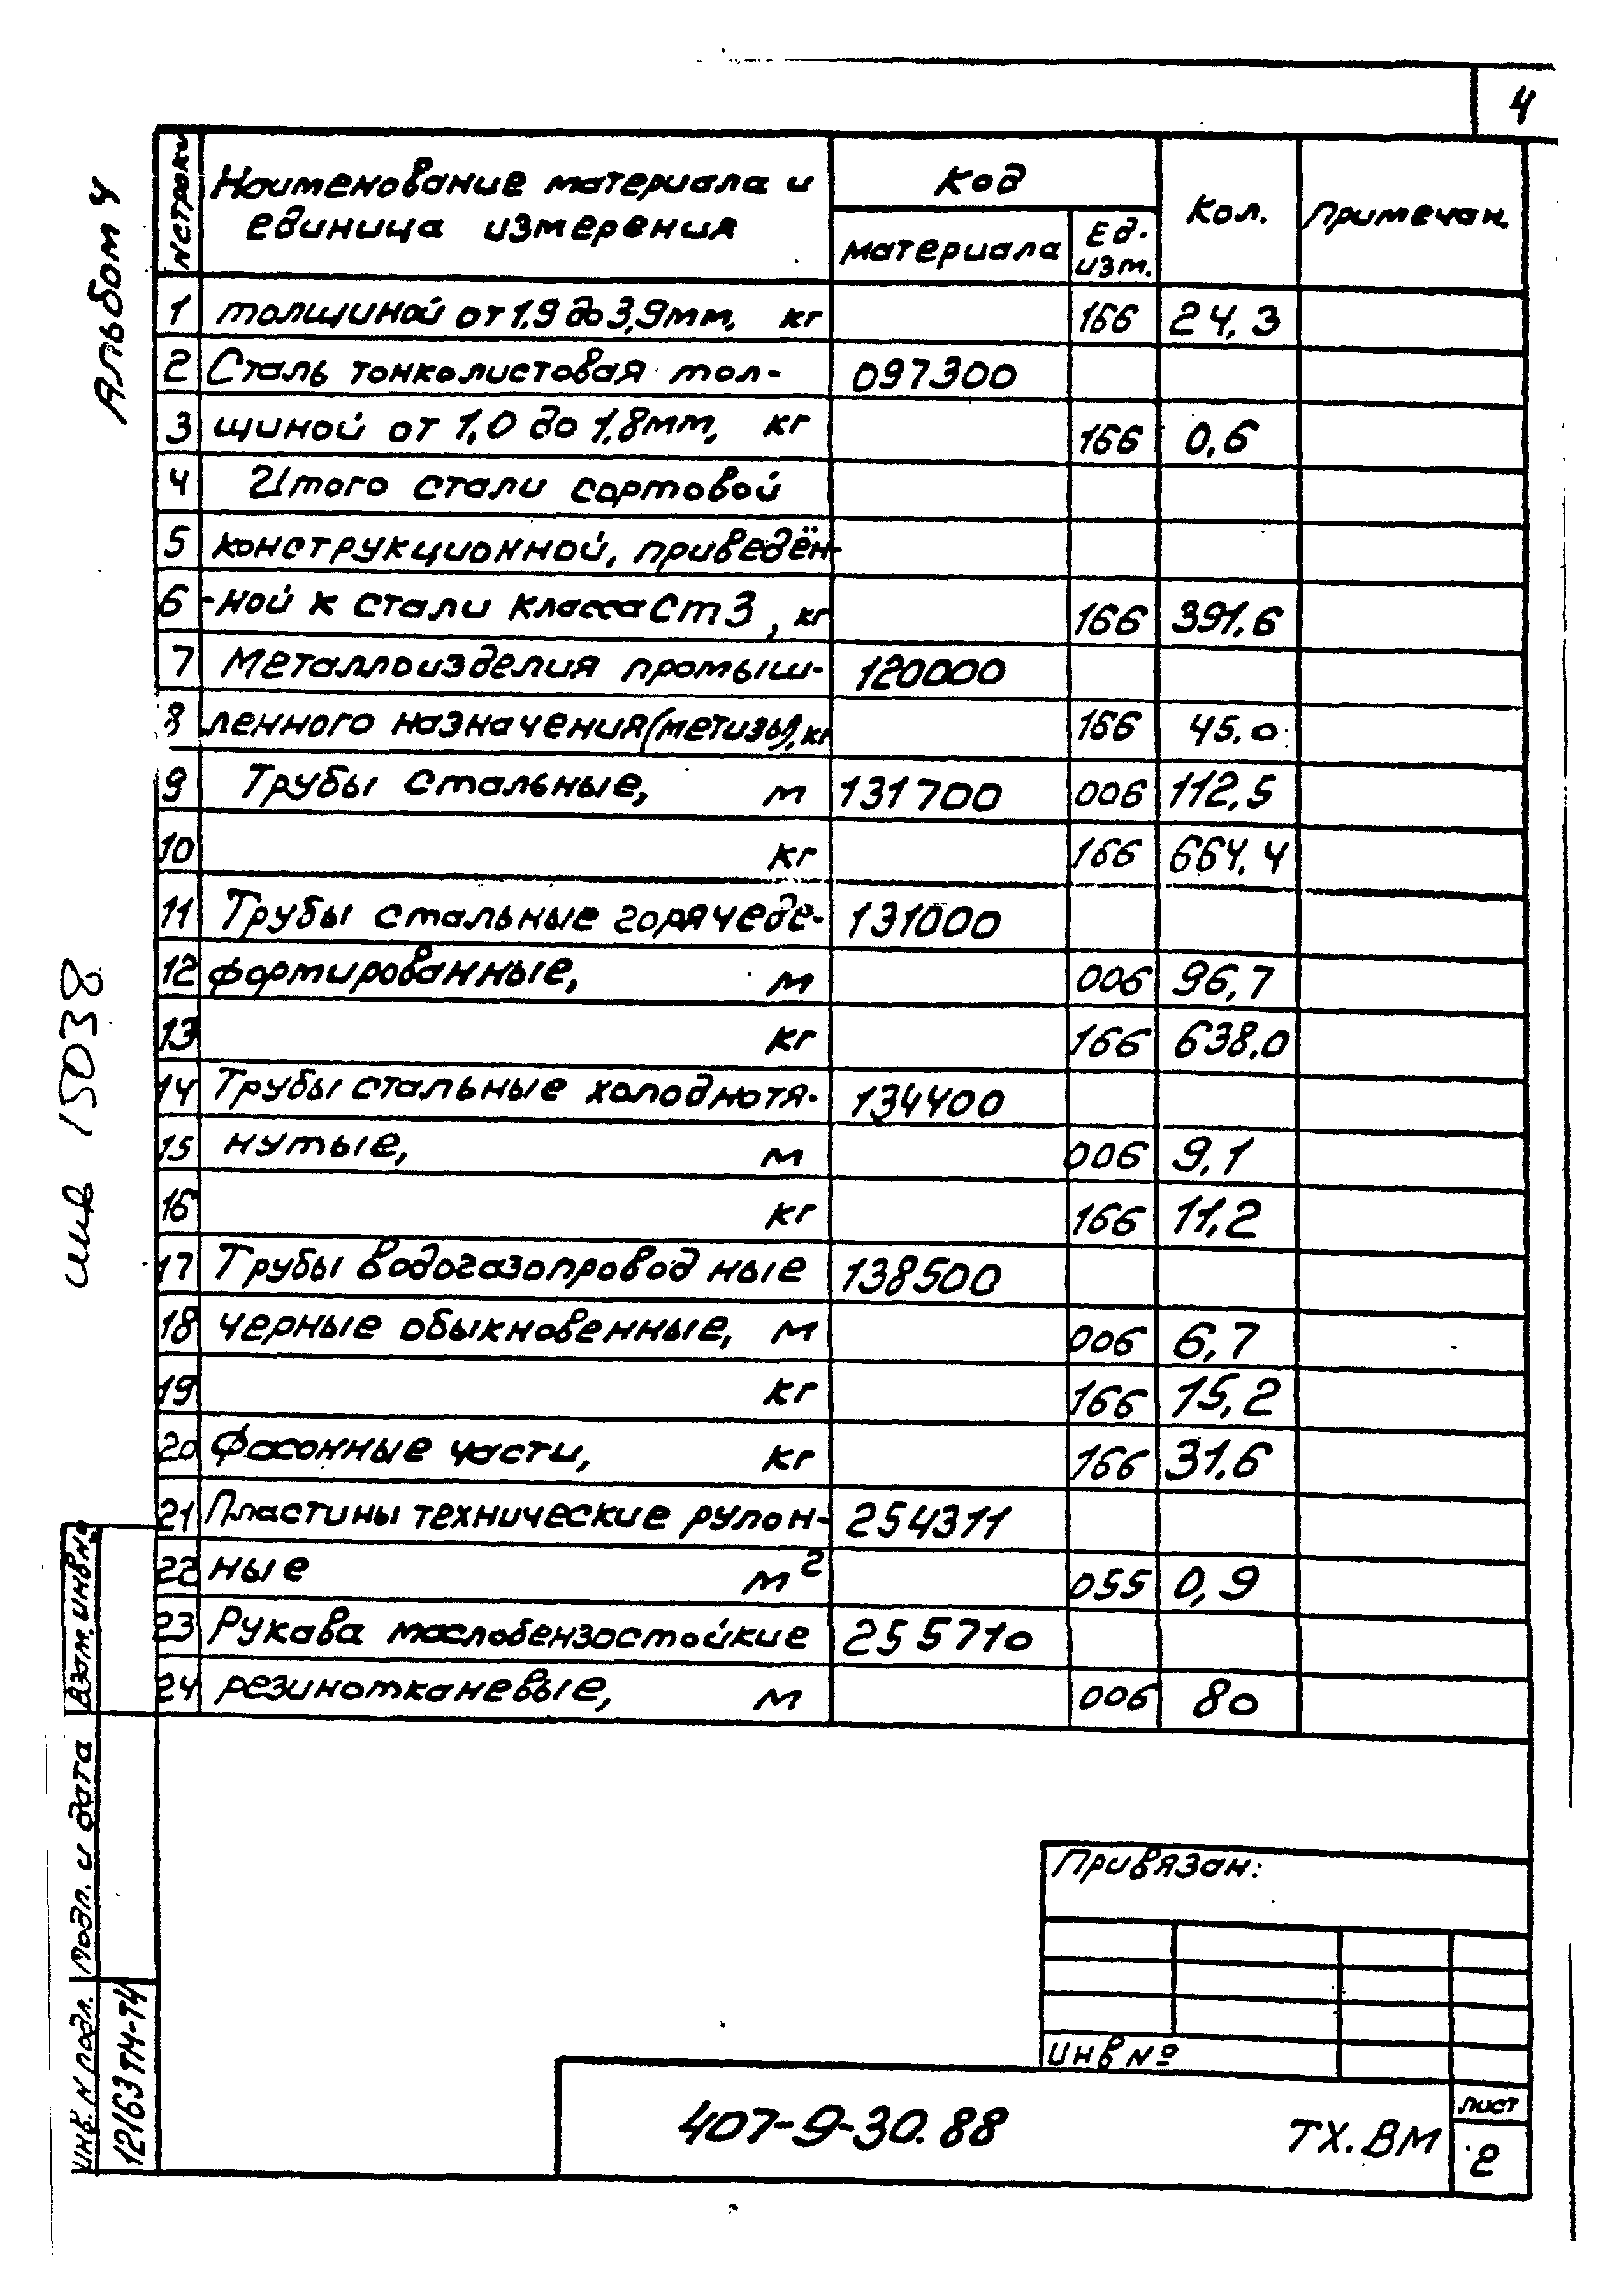 4
Альбом 4
инв 15038
N строки
Наименование материала и
единица измерения
Код
материала
Ед.
изм.
Кол.
Примечан.
1 толщиной от 1,9 до 3,9мм, кг 166 24,3
2 Сталь тонколистовая тол- 097300
3 щиной от 1,0 до 1,8мм, кг 166 0,6
4 Итого стали сортовой
5 конструкционной, приведён-
6 -ной к стали класса Ст3, кг 166 391,6
7 Металлоизделия промыш- 120000
8 ленного назначения (метизы), кг 166 45,0
9 Трубы стальные, м 131700 006 112,5
10 кг 166 664,4
11 Трубы стальные горячеде- 131000
12 формированные, м 006 96,7
13 кг 166 638,0
14 Трубы стальные холоднотя- 134400
15 нутые, м 006 9,1
16 кг 166 11,2
17 Трубы водогазопроводные 138500
18 черные обыкновенные, м 006 6,7
19 кг 166 15,2
20 Фасонные части, кг 166 31,6
21 Пластины технические рулон- 254311
22 ные м² 055 0,9
23 Рукава маслобензостойкие 255710
24 резинотканевые, м 006 80
Взам. инв №
Подл. и дата
Инв. N подл.
12163ТМ-Т4
Привязан:
ИНВ №
407-9-30.88
ТХ. ВМ
лист
2